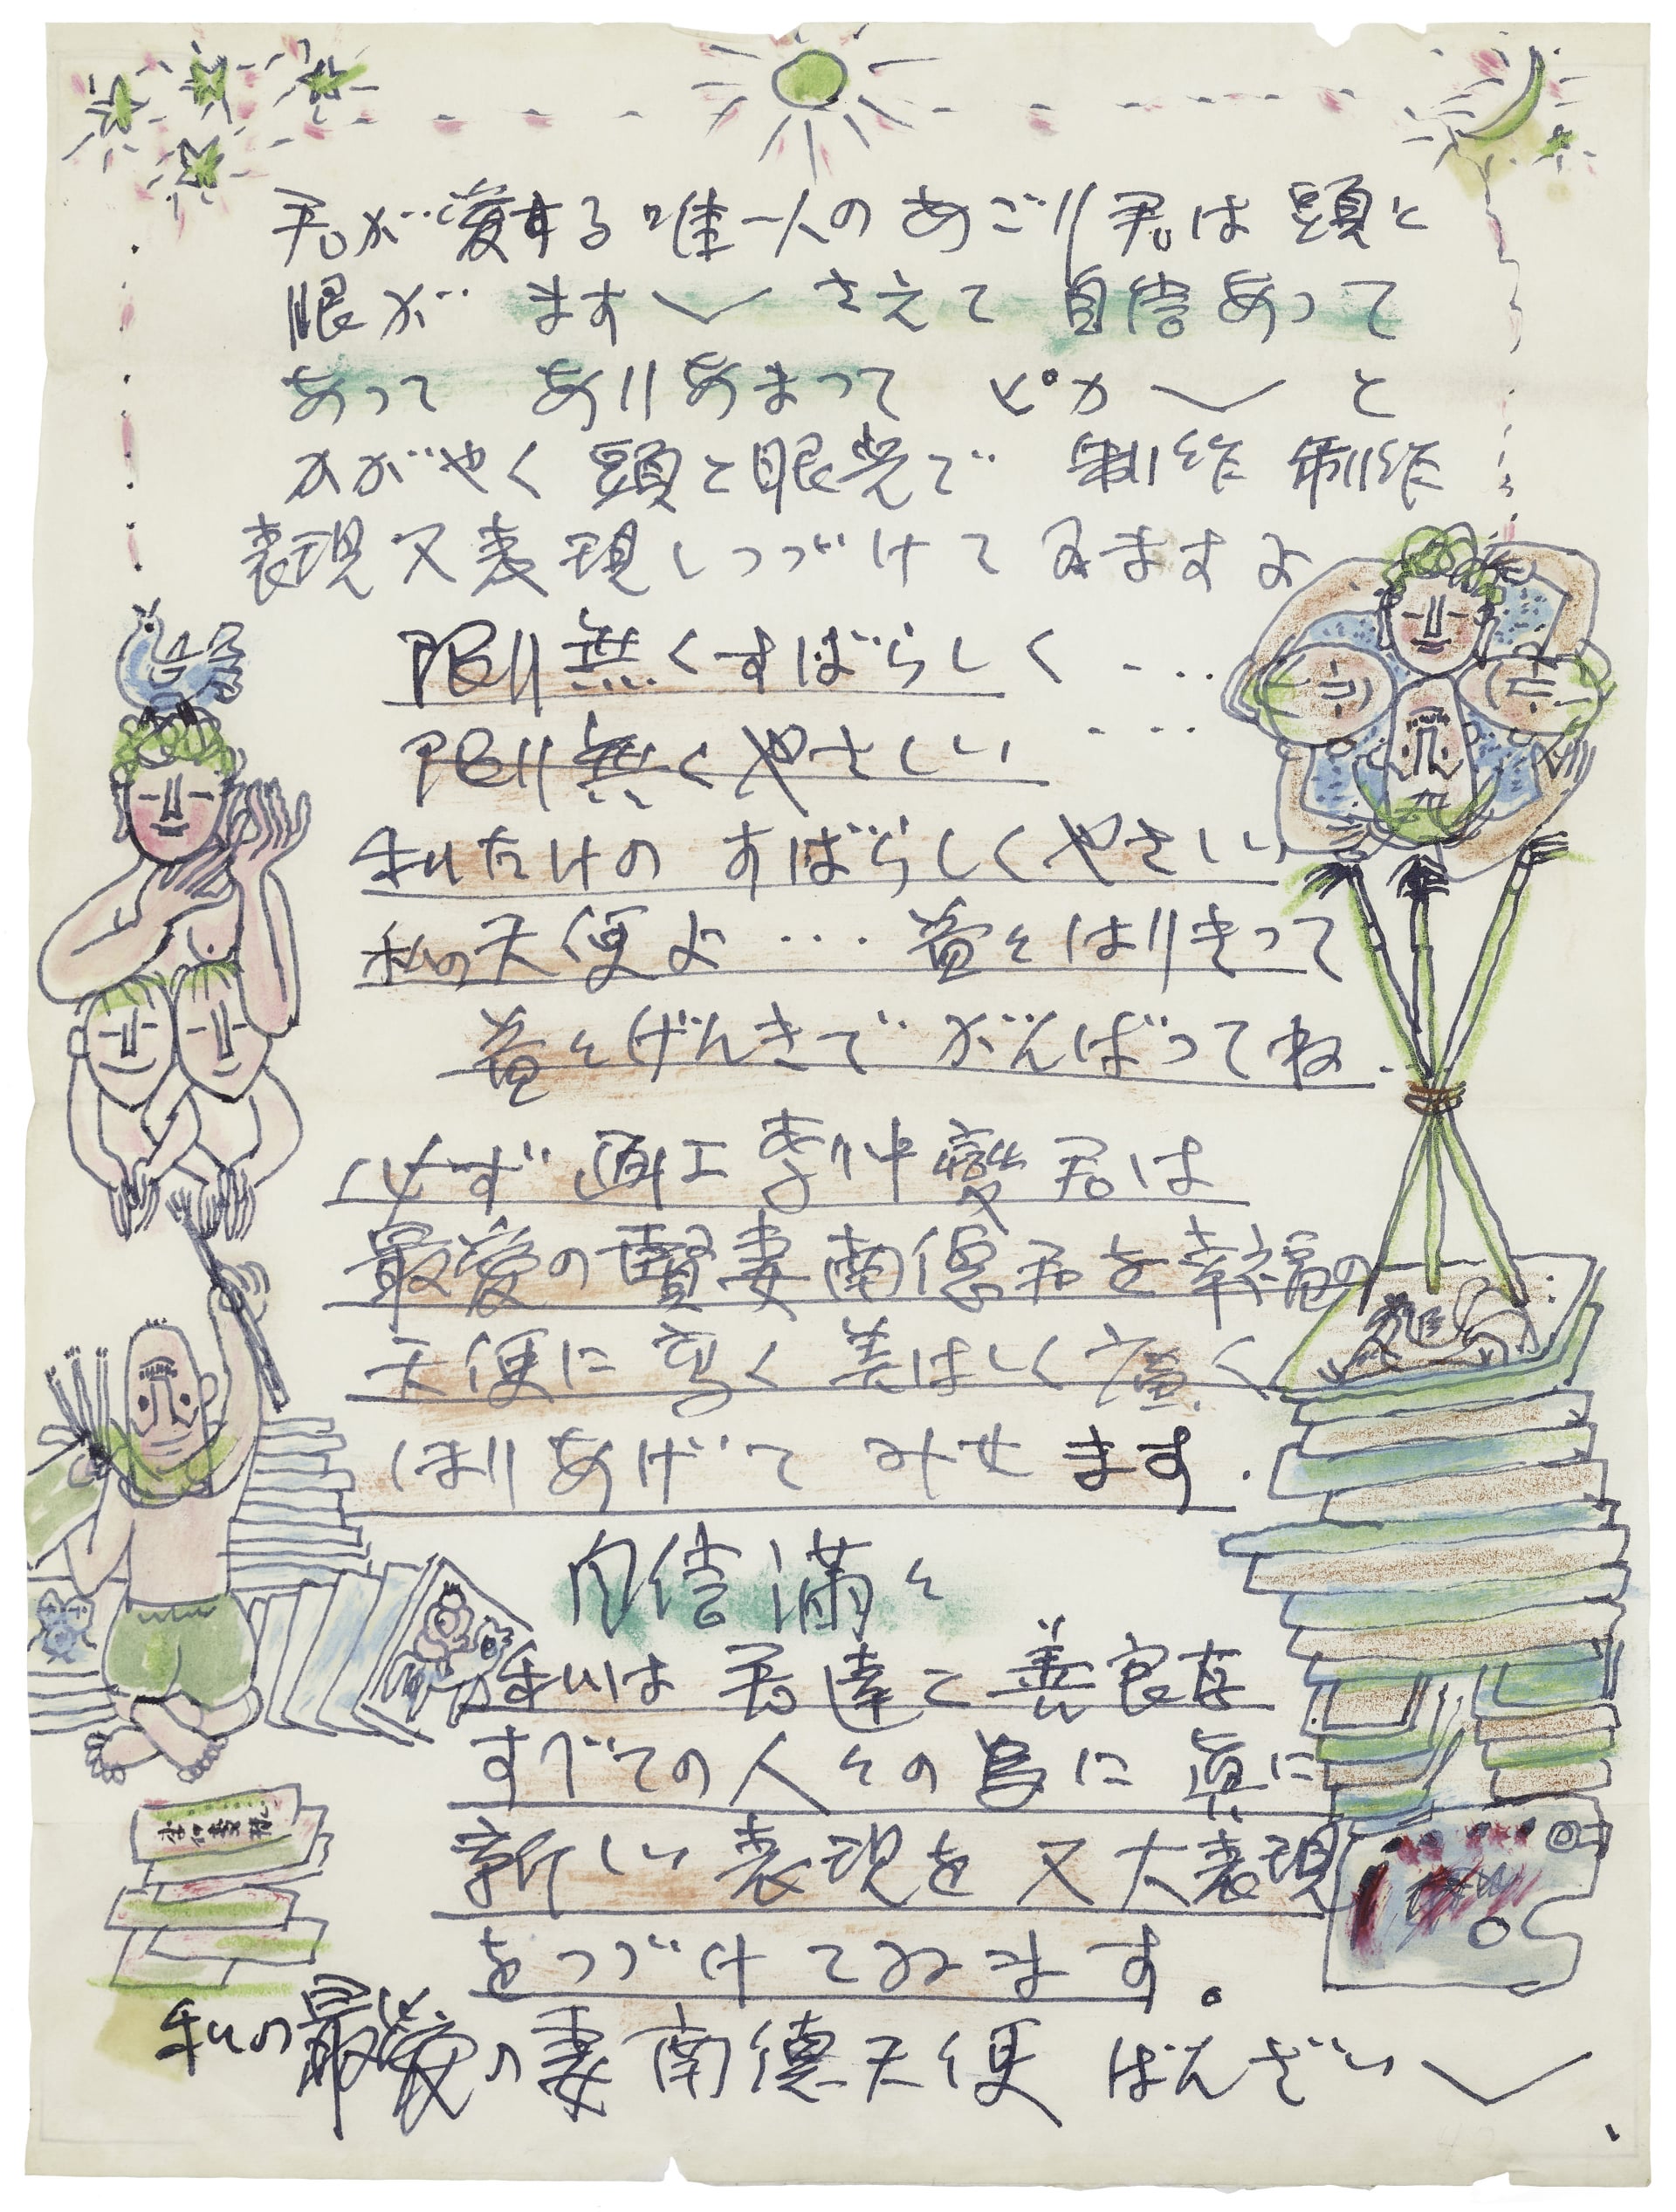 君が愛する唯一人のあごり君は頭と
眼が ます〱 さえて 自信あって
あって ありあまって ピカ〱 と
かがやく 頭と眼光で 制作 制作
表現 又 表現しつづけて みますよ
限り無くすばらしく ‥‥
限り無くやさしい ‥‥
私だけの すばらしくやさしい
私の天使よ … 益々はりきって
益々げんきで がんばってね.
必ず 画工 李仲燮君は
最愛の賢妻南徳君を幸福の
天使に 高く 美はしく 廣く
ほりあげて みせ ます.
自信満々
私は 君達と 善良な
すべての人々の為に 真に
新しい 表現を 又 大表現
をつづけてみます。
私の最愛の妻 南徳天使 ばんざい〱